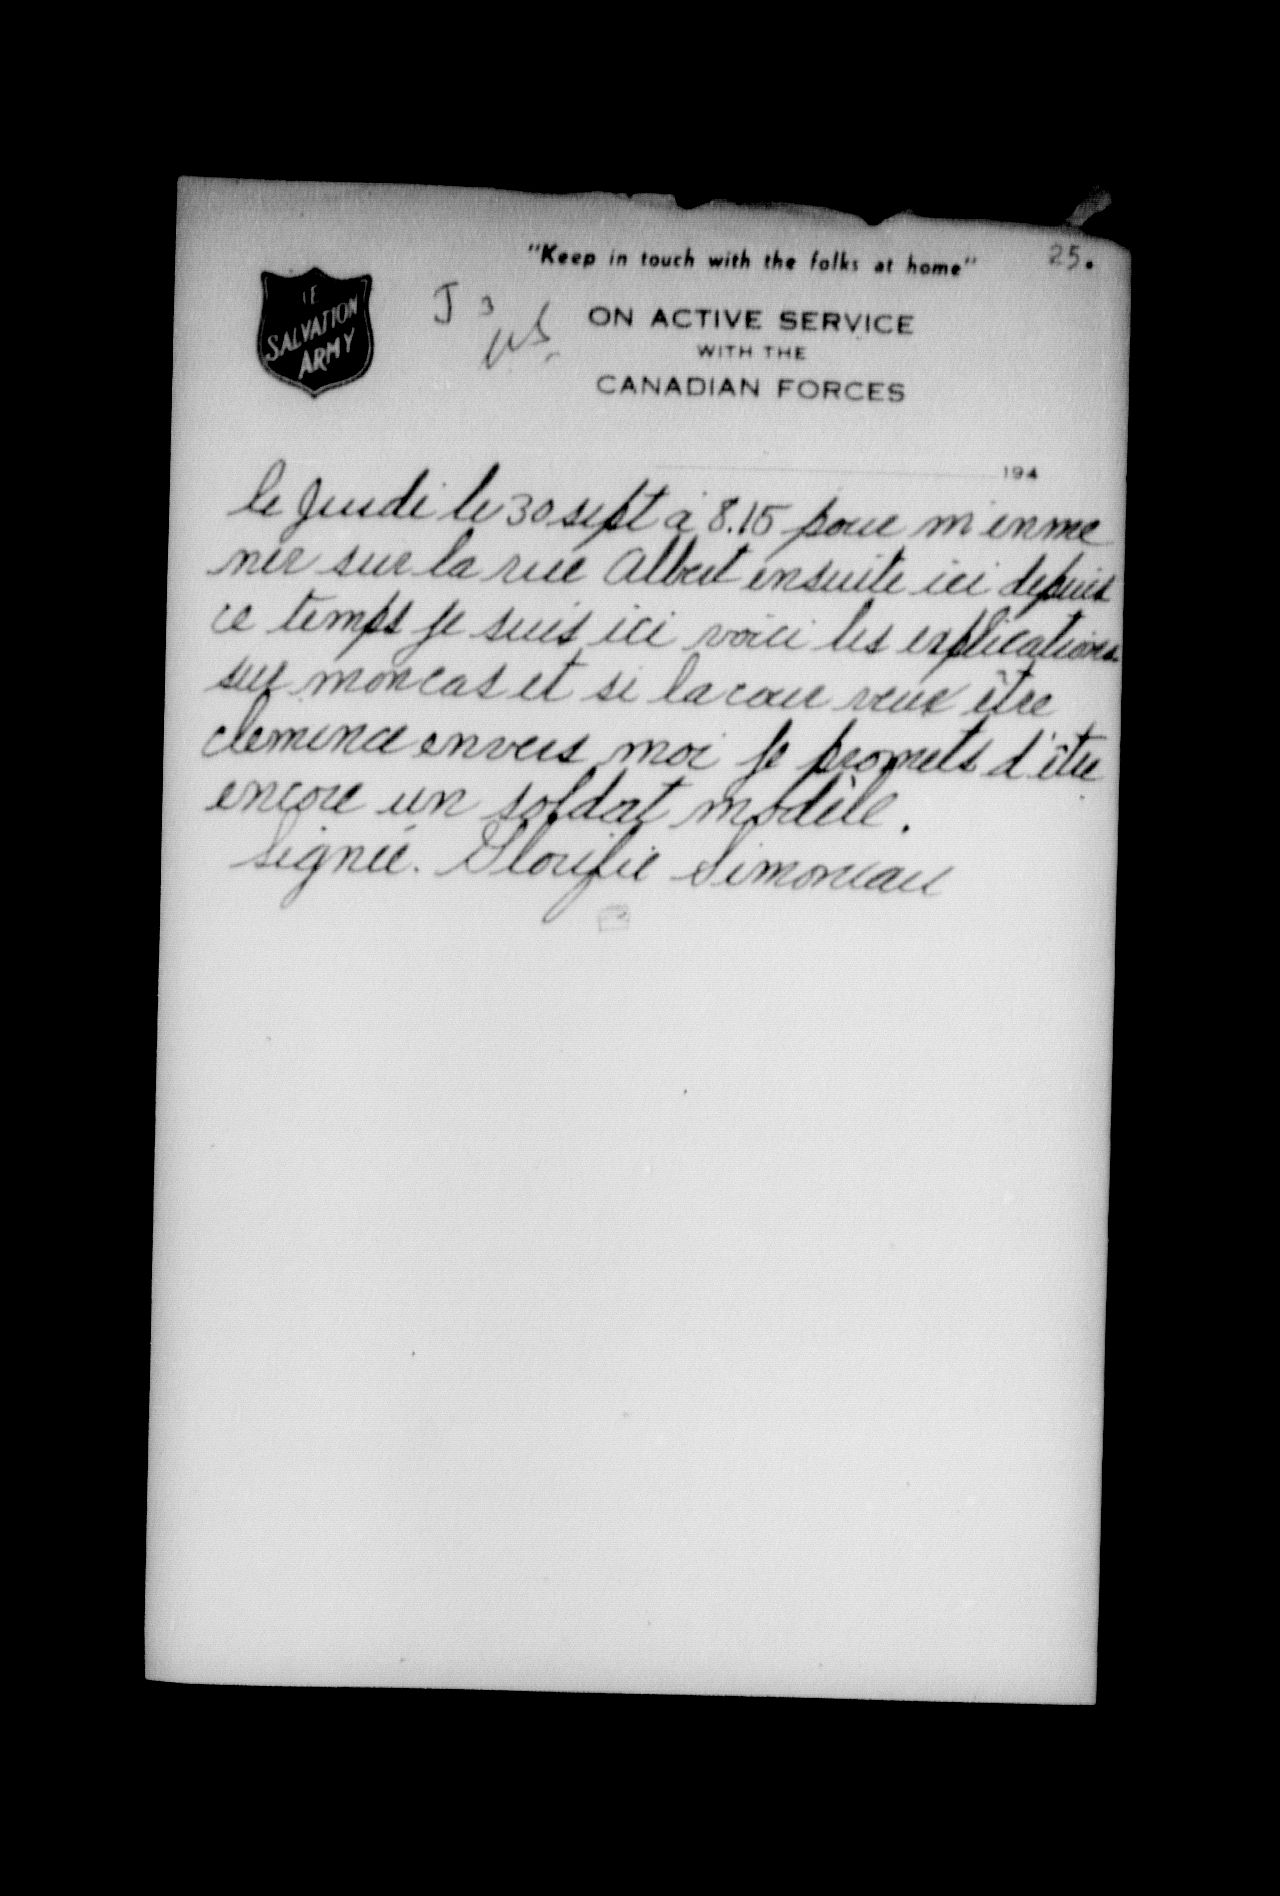 "Keep in touch with the folks at home"
25.
THE
SALVATION
ARMY
J 3
ON ACTIVE SERVICE
WITH THE
CANADIAN FORCES
194
le Jeudi le 30 sept à 8.15 pour m'enme
ner sur la rue Albert ensuite ici depuis
ce temps je suis ici voici les explications
sur mon cas et si la cour veux être
clemence envers moi je promets d'être
encore un soldat modèle.
Signée. Glorifie Simoneau